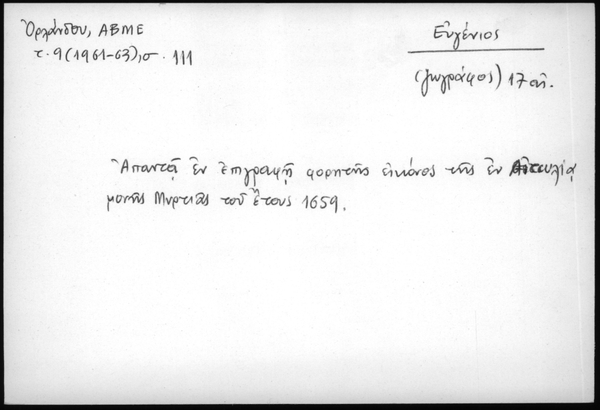 Ὀρλάνδου, ΑΒΜΕ
τ. 9 (1961-63), σ. 111
Εὐγένιος
(ζωγράφος) 17 αἰ.
Ἀπαντᾷ ἐν ἐπιγραφῇ φορητῆς εἰκόνος τῆς ἐν Αἰτωλίᾳ
μονῆς Μυρτιᾶς τοῦ ἔτους 1659.